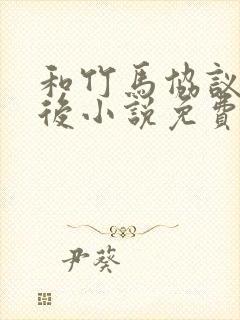 和竹馬協議
後小說免費
尹葵